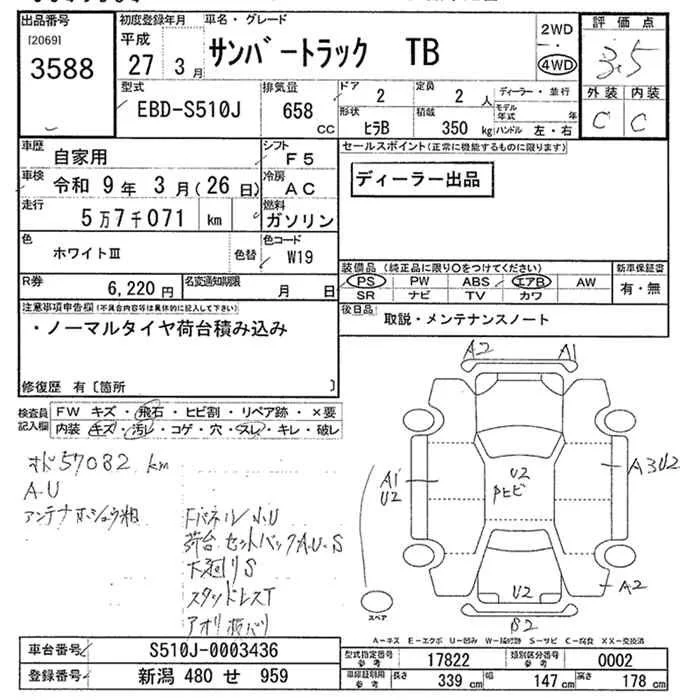 出品番号
[2069]
3588
初度登録年月
平成
27年 3月
車名・グレード
サンバートラック TB
2WD
・
4WD
評価点
3.5
外装 内装
C C
型式
EBD-S510J
排気量
658
CC
ドア
2
定員
2 人
ディーラー・並行
モデル年式 年
形状
ヒラB
積載
350 kg
ハンドル 左・右
車歴
自家用
シフト
F5
車検
令和 9年 3月(26日)
冷房
AC
走行
5万7千071 km
燃料
ガソリン
色
ホワイトⅢ
色替
色コード
W19
R券
6,220 円
名変通知期限
月 日
セールスポイント(正常に機能するものに限ります)
ディーラー出品
装備品 (純正品に限り○をつけてください)
新車保証書
PS PW ABS エアB AW
SR ナビ TV カワ
有・無
後日品
取説・メンテナンスノート
注意事項申告欄(不具合内容等は具体的に記入して下さい)
・ノーマルタイヤ荷台積み込み
修復歴 有〔箇所 〕
検査員記入欄
FW キズ・飛石・ヒビ割・リペア跡・×要
内装 キズ・汚レ・コゲ・穴・スレ・キレ・破レ
オド57082 km
A-U
アンテナホショウ相
Fパネル小U
荷台セットバックA.U.S
下廻りS
スタッドレスT
アオリ
A2 A1
A1
U2
U2
Pヒビ
A3U2
U2
A2
B2
スペア
A-キズ E-エクボ U-凹み W-補修跡 S-サビ C-腐食 XX-交換済
車台番号
S510J-0003436
登録番号
新潟 480 せ 959
型式指定番号
参考
17822
類別区分番号
参考
0002
車庫証明用
参考
長さ
339 cm
幅
147 cm
高さ
178 cm